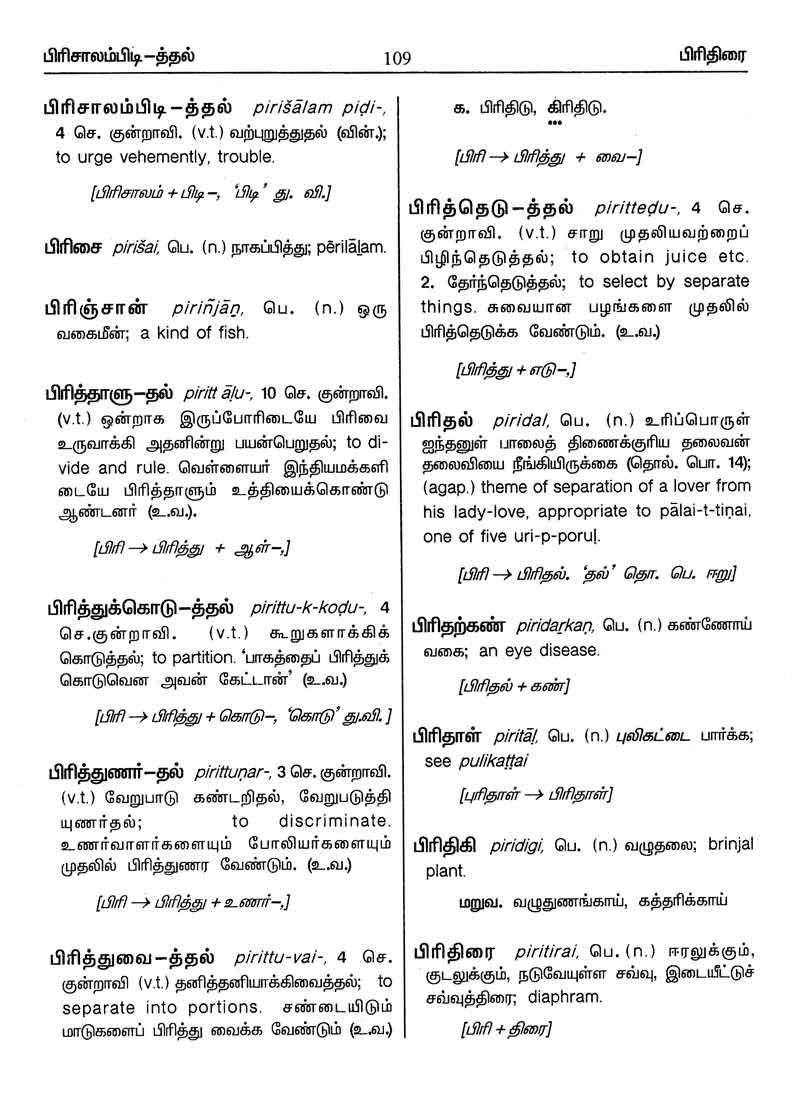 பிரிசாலம்பிடி–த்தல்
109
பிரிதிரை
பிரிசாலம்பிடி–த்தல் pirišālam piḍi-,
4 செ. குன்றாவி. (v.t.) வற்புறுத்துதல் (வின்.);
to urge vehemently, trouble.
[பிரிசாலம் + பிடி –, ‘பிடி’ து. வி.]
பிரிசை pirišai, பெ. (n.) நாகப்பித்து; pērilāḻam.
பிரிஞ்சான் piriñjāṉ, பெ. (n.) ஒரு
வகைமீன்; a kind of fish.
பிரித்தாளு–தல் piritt āḷu-, 10 செ. குன்றாவி.
(v.t.) ஒன்றாக இருப்போரிடையே பிரிவை
உருவாக்கி அதனின்று பயன்பெறுதல்; to di-
vide and rule. வெள்ளையர் இந்தியமக்களி
டையே பிரித்தாளும் உத்தியைக்கொண்டு
ஆண்டனர் (உ.வ.).
[பிரி → பிரித்து + ஆள்–,]
பிரித்துக்கொடு–த்தல் pirittu-k-koḍu-, 4
செ.குன்றாவி. (v.t.) கூறுகளாக்கிக்
கொடுத்தல்; to partition. ‘பாகத்தைப் பிரித்துக்
கொடுவென அவன் கேட்டான்’ (உ.வ.)
[பிரி → பிரித்து + கொடு–, ‘கொடு’ து.வி. ]
பிரித்துணர்–தல் pirittuṇar-, 3 செ. குன்றாவி.
(v.t.) வேறுபாடு கண்டறிதல், வேறுபடுத்தி
யுணர்தல்; to discriminate.
உணர்வாளர்களையும் போலியர்களையும்
முதலில் பிரித்துணர வேண்டும். (உ.வ.)
[பிரி → பிரித்து + உணர்–,]
பிரித்துவை–த்தல் pirittu-vai-, 4 செ.
குன்றாவி (v.t.) தனித்தனியாக்கிவைத்தல்; to
separate into portions. சண்டையிடும்
மாடுகளைப் பிரித்து வைக்க வேண்டும் (உ.வ.)
க. பிரிதிடு, கிரிதிடு.
[பிரி → பிரித்து + வை–]
பிரித்தெடு–த்தல் piritteḍu-, 4 செ.
குன்றாவி. (v.t.) சாறு முதலியவற்றைப்
பிழிந்தெடுத்தல்; to obtain juice etc.
2. தேர்ந்தெடுத்தல்; to select by separate
things. சுவையான பழங்களை முதலில்
பிரித்தெடுக்க வேண்டும். (உ.வ.)
[பிரித்து + எடு–,]
பிரிதல் piridal, பெ. (n.) உரிப்பொருள்
ஐந்தனுள் பாலைத் திணைக்குரிய தலைவன்
தலைவியை நீங்கியிருக்கை (தொல். பொ. 14);
(agap.) theme of separation of a lover from
his lady-love, appropriate to pālai-t-tiṇai,
one of five uri-p-poruḷ.
[பிரி → பிரிதல். ‘தல்’ தொ. பெ. ஈறு]
பிரிதற்கண் piridaṟkaṇ, பெ. (n.) கண்ணோய்
வகை; an eye disease.
[பிரிதல் + கண்]
பிரிதாள் piritāḷ, பெ. (n.) புலிகட்டை பார்க்க;
see pulikaṭṭai
[புரிதாள் → பிரிதாள்]
பிரிதிகி piridigi, பெ. (n.) வழுதலை; brinjal
plant.
மறுவ. வழுதுணங்காய், கத்தரிக்காய்
பிரிதிரை piritirai, பெ. (n.) ஈரலுக்கும்,
குடலுக்கும், நடுவேயுள்ள சவ்வு, இடையீட்டுச்
சவ்வுத்திரை; diaphram.
[பிரி + திரை]